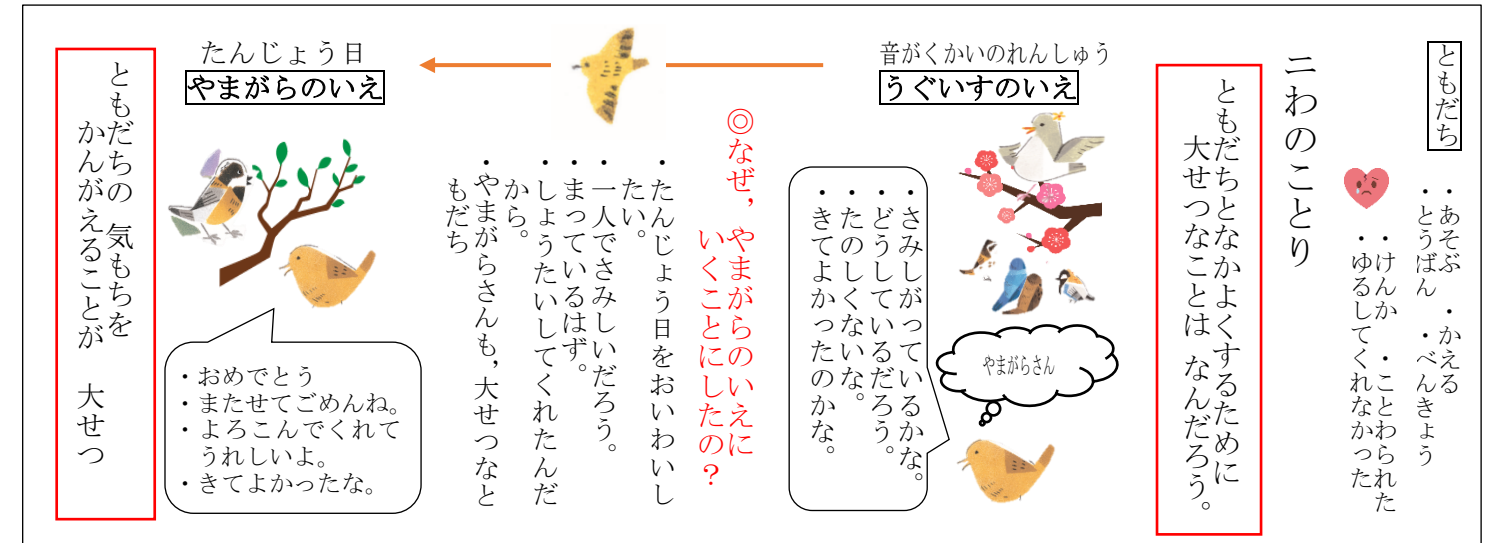 ともだち
・あそぶ ・かえる
・とうばん ・べんきょう
・けんか ・ことわられた
・ゆるしてくれなかった
二わのことり
ともだちとなかよくするために
大せつなことは なんだろう。
音がくかいのれんしゅう
うぐいすのいえ
・さみしがっているかな。
・どうしているだろう。
・たのしくないな。
・きてよかったのかな。
やまがらさん
◎なぜ，やまがらのいえに
いくことにしたの？
・たんじょう日をおいわいし
たい。
・一人でさみしいだろう。
・まっているはず。
・しょうたいしてくれたんだ
から。
・やまがらさんも，大せつなと
もだち
たんじょう日
やまがらのいえ
・おめでとう
・またせてごめんね。
・よろこんでくれて
うれしいよ。
・きてよかったな。
ともだちの 気もちを
かんがえることが 大せつ